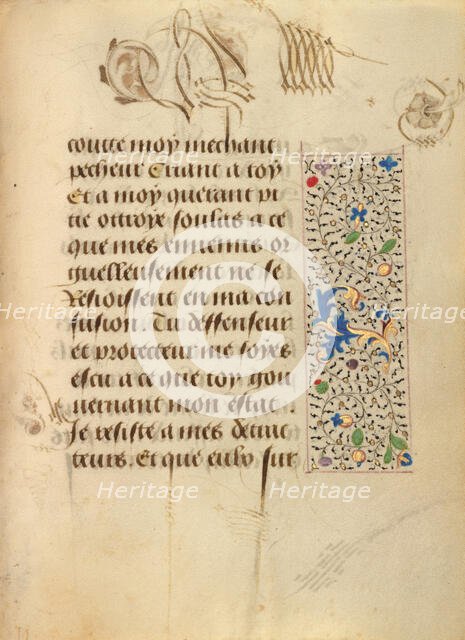 coutte moy mechant
pecheur Criant a toy
Et a moy quérant pi
tie ottroye soulas a ce
que mes ennemis or
guelleusement ne se
Resioissent en ma con
fusion. Tu deffenseur
et protecteur me soyes
escu a ce que toy gou
uernant mon estat
Je resiste a mes detrac
teurs. Et que eulx sur
Heritage
Heritage
Heritage
Heritage
Heritage
Heritage
Heritage
Heritage